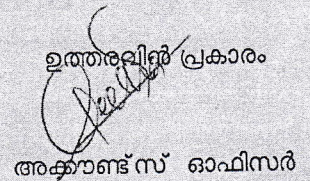 ഉത്തരുവിൻ പ്രകാരം
അക്കൗണ്ട്സ് ഓഫിസർ